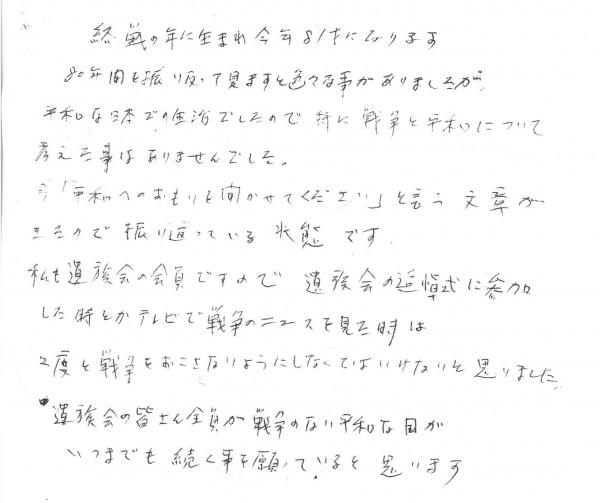 終戦の年に生まれ今年81才になります
80年間を振り返って見ますと色々な事がありましたが、
平和な日本での生活でしたので特に戦争と平和について
考えた事はありませんでした。
今「平和へのおもいを聞かせてください」と言う文章が
きたので振り返っている状態です.
私も遺族会の会員ですので 遺族会の追悼式に参加
した時とかテレビで戦争のニュースを見た時は
2度と戦争をおこさないようにしなくてはいけないと思いました
・遺族会の皆さん全員が戦争のない平和な国が
いつまでも続く事を願っていると思います